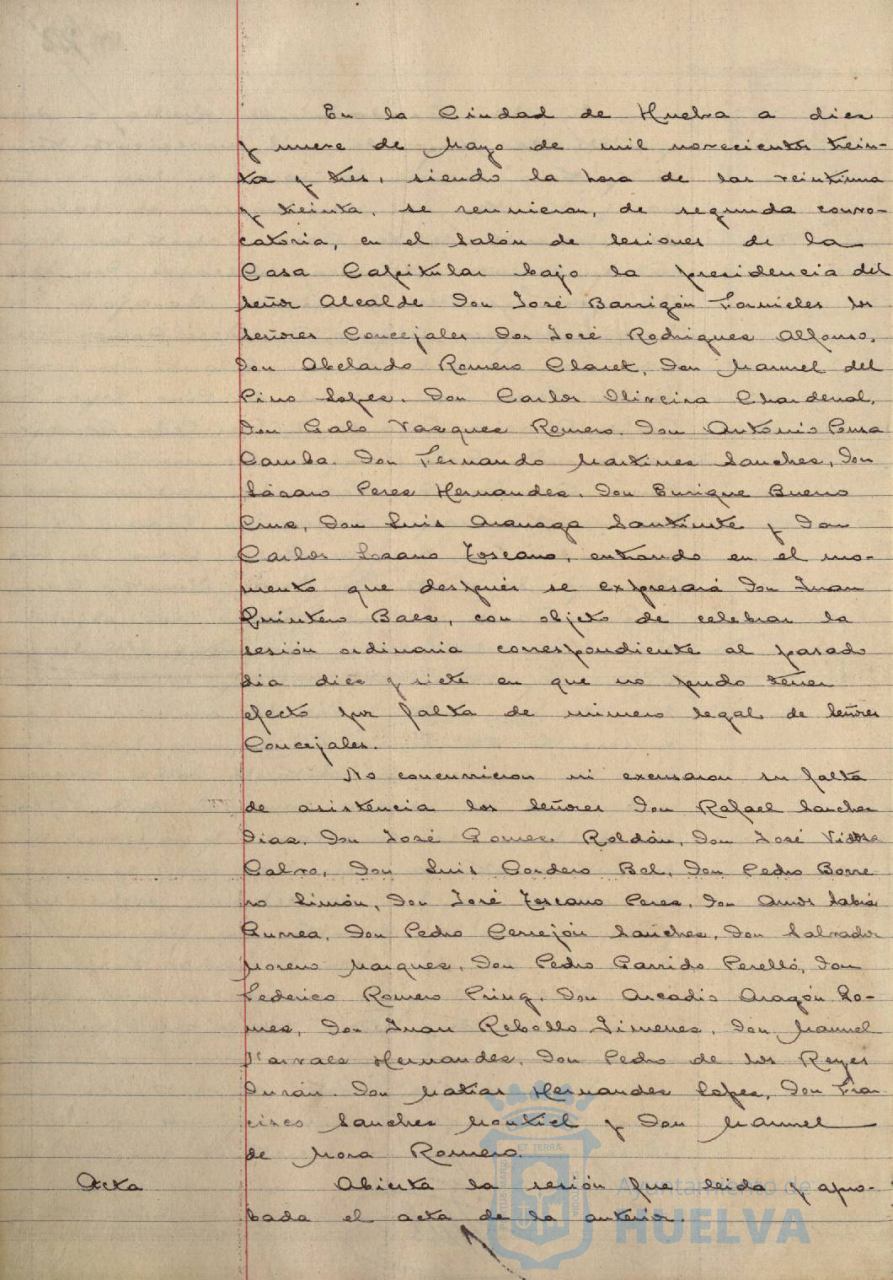 En la Ciudad de Huelva a diez
y nueve de Mayo de mil novecientos trein-
ta y tres, siendo la hora de las veintiuna
y treinta, se reunieron, de segunda convo-
catoria, en el Salón de sesiones de la
Casa Capitular bajo la presidencia del
señor Alcalde Don José Barrigón Fornieles los
señores Concejales Don José Rodriguez Alfonso,
Don Abelardo Romero Claret, Don Manuel del
Pino Lopez, Don Carlos Oliveira Chardenal,
Don Galo Vazquez Romero, Don António Ponsa
Gamba, Don Fernando Martinez Sanchez, Don
Lázaro Perez Hernandez, Don Enrique Bueno
Cruz, Don Luis Aranaga Santiuste y Don
Carlos Lozano Toscano, entrando en el mo-
mento que después se expresará Don Juan
Quintero Baez, con objeto de celebrar la
sesión ordinaria correspondiente al pasado
dia diez y siete en que no pudo tener
efecto por falta de número legal de Señores
Concejales.
No concurrieron ni excusaron su falta
de asistencia los Señores Don Rafael Sanchez
Diaz, Don José Gomez Roldán, Don José
Calvo, Don Luis Cordero Bel, Don Pedro Borre
ro Limón, Don José Toscano Perez, Don Amós Sabrás
Gurrea, Don Pedro Cerrejón Sanchez, Don Salvador
Moreno Marquez, Don Pedro Garrido Perelló, Don
Federico Romero Don Arcadio Aragón Go-
mez, Don Juan Rebollo Jimenez, Don Manuel
Hernandez, Don Pedro de los Reyes
Durán, Don Matias Hernandez Lopez, Don Fran
cisco Sanchez Montiel y Don Manuel
de Mora Romero.
Acta Abierta la sesión fue leida y apro-
bada el acta de la anterior.
ET TERRA
Ayuntamiento de
HUELVA